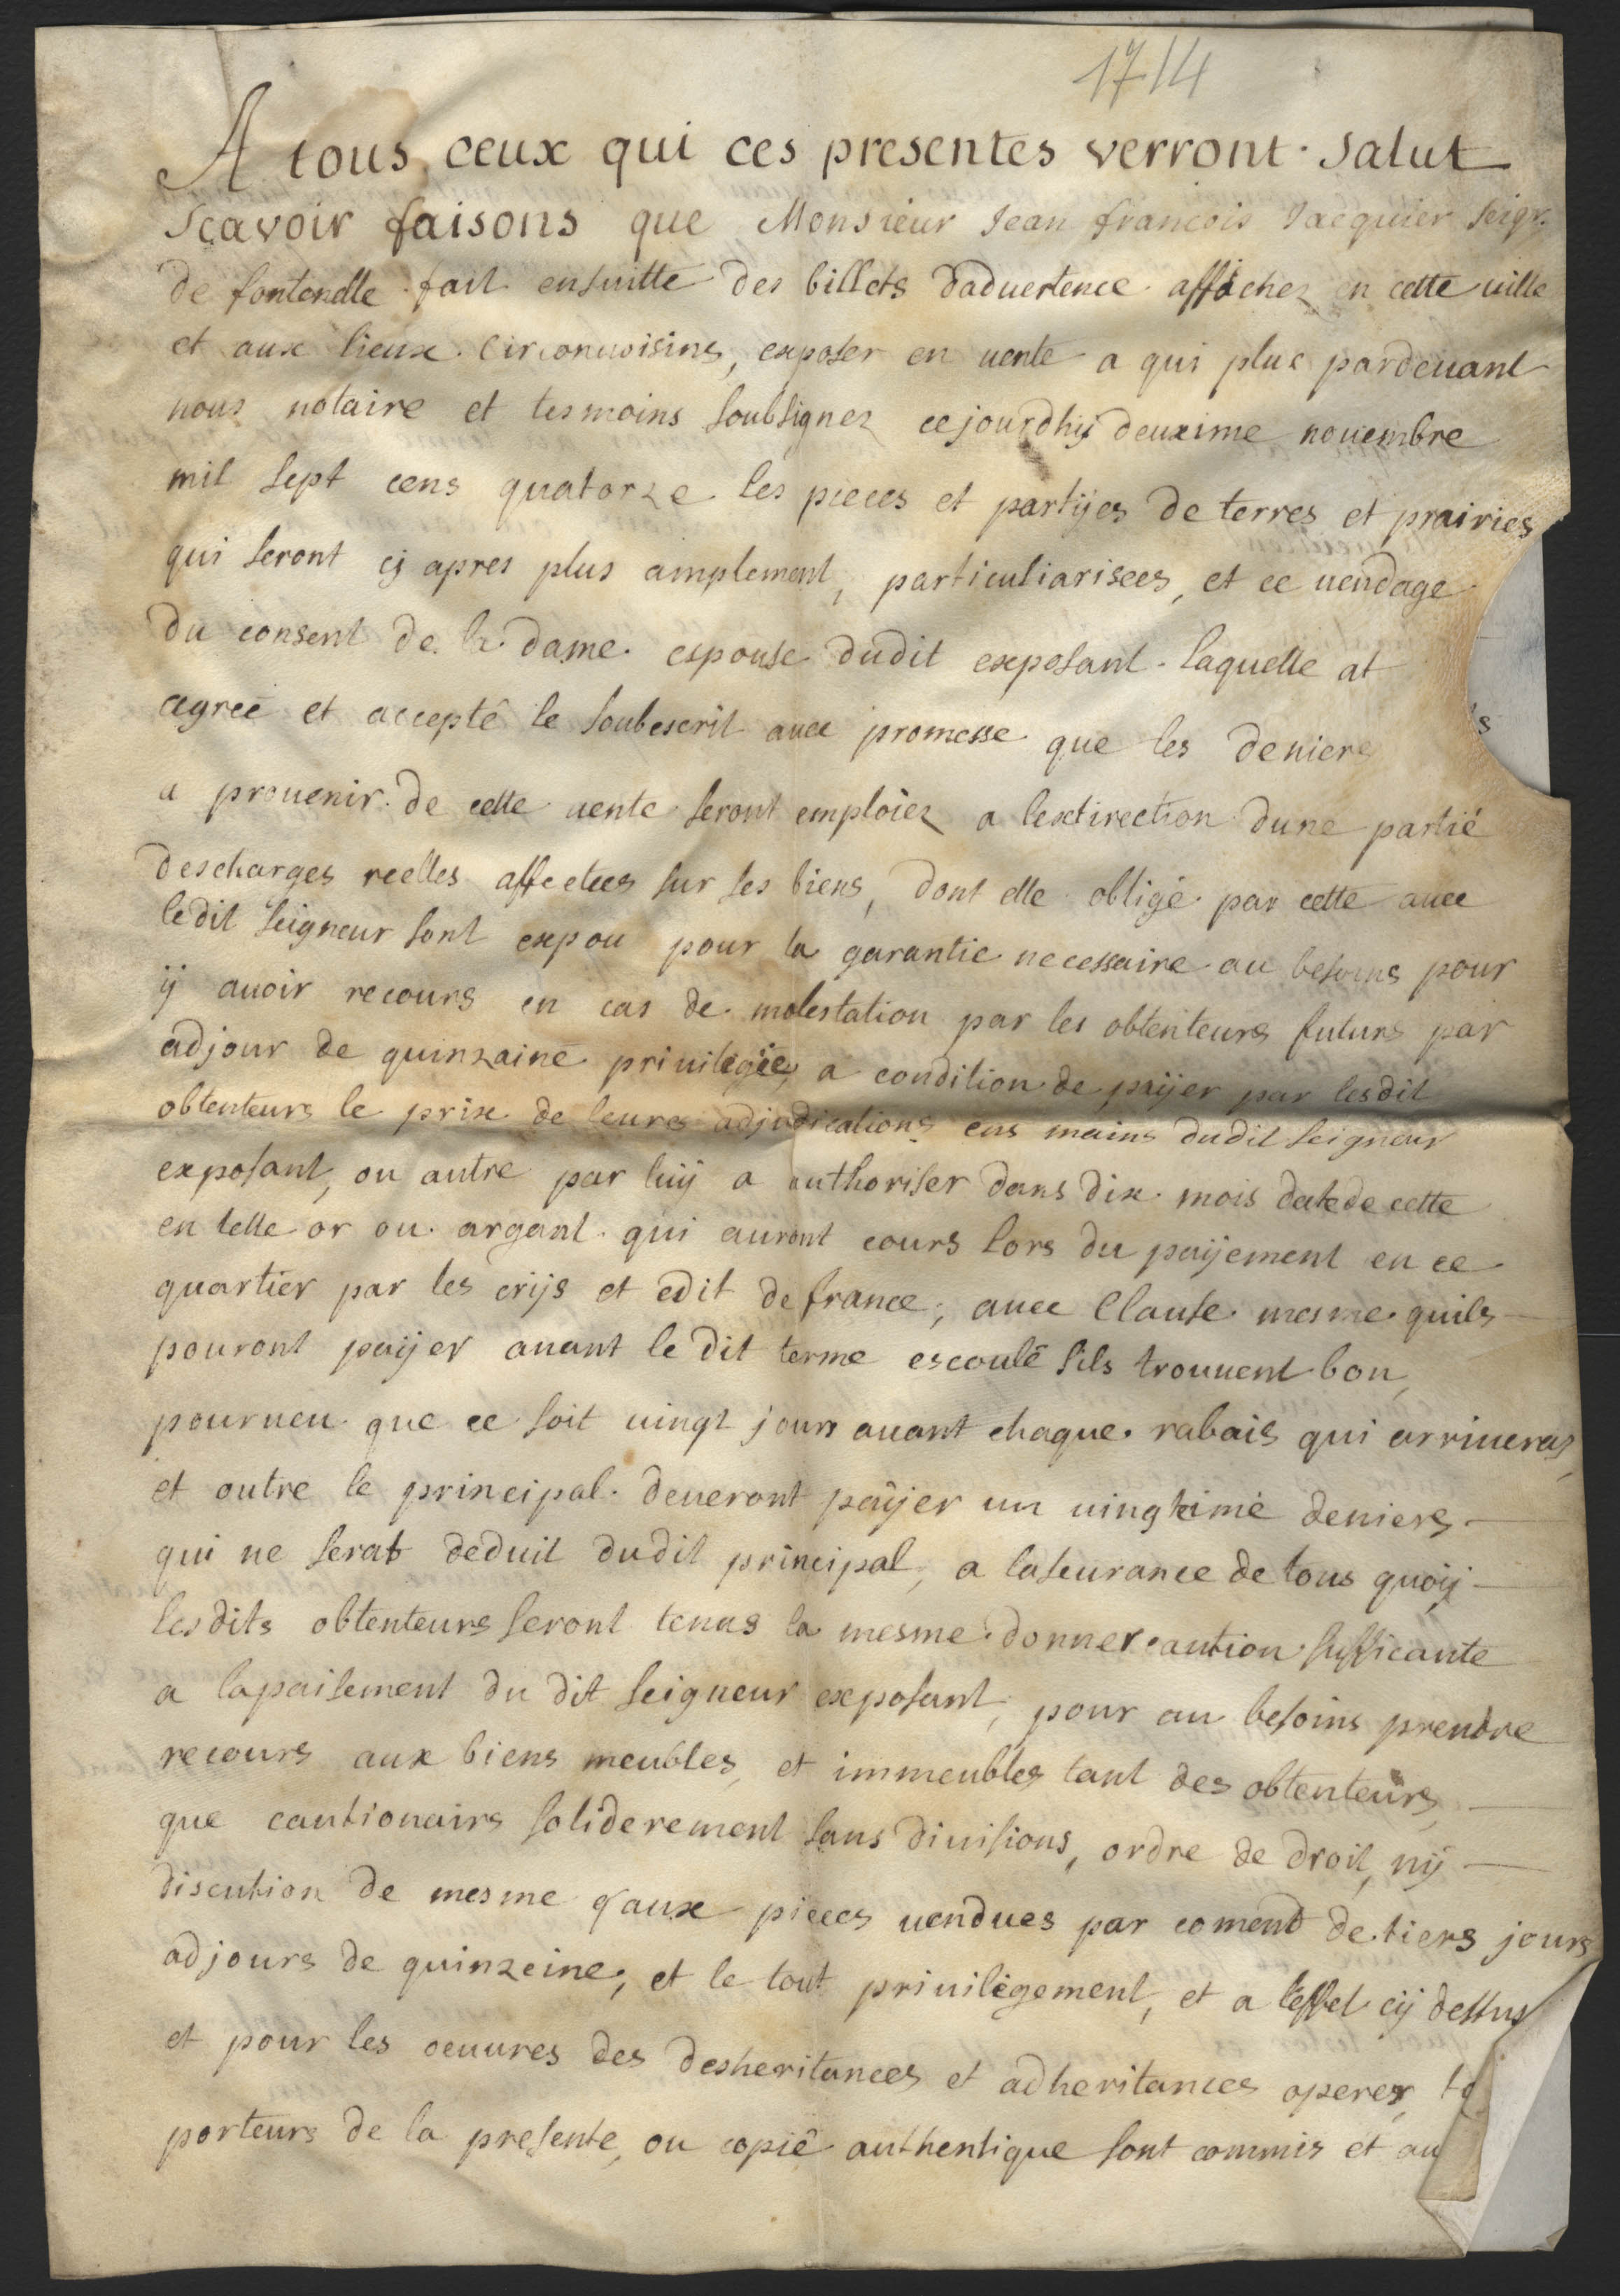 1714
A tous ceux qui ces presentes verront salut
Sçavoir faisons que Monsieur Jean francois Jacquier seigr.
de fontenelle fait ensuitte des billets daduertence affichez en cette uille
et aux lieux circonuoisins, exposer en uente a qui plus pardeuant
nous notaire et tesmoins soubsignez cejourdhij deuxime nouembre
mil sept cens quatorze les pieces et partijes de terres et prairies
qui seront cij apres plus amplement, particuliarisees, et ce uendage
du consent de la dame espouse dudit exposant laquelle at
agreé et accepté le soubescrit auec promesse que les deniers
a prouenir de cette uente seront emploiez a lextirection dune partié
descharges reelles affectees sur ses biens, dont elle obligé par cette auec
ledit seigneur sont expou pour la garantie necessaire au besoins pour
ij auoir recours en cas de molestation par les obtenteurs futurs par
adjour de quinzaine priuilegiée, a condition de paijer par lesdit
obtenteurs le prix de leurs adjudications ens mains dudit seigneur
exposant, ou autre par luij a authoriser dans dix mois datede cette
en telle or ou argant qui auront cours lors du paijement en ce
quartier par les crijs et edit de france, auec Clause mesme quils
pouront paijer auant le dit terme escoulé sils trouuent bon,
pourueu que ce soit uingt jours auant chaque rabais qui arriueras,
et outre le principal deueront paijer un uingtimé deniers
qui ne serat deduit dudit principal, a laseurance de tous quoij
lesdits obtenteurs seront tenus la mesme donner caution sufficante
a lapaisement du dit seigneur exposant, pour au besoins prendre
recours aux biens meubles, et immeubles tant des obtenteurs,
que cautionairs soliderement sans diuisions, ordre de droit, nij
discution de mesme qaux pieces uendues par coment de tiers jours
adjours de quinzeine, et le tout priuilegement, et a leffet cij dessus
et pour les oeuures des desheritances et adheritances operer, to
porteurs de la presente, ou copié authentique sont commis et au